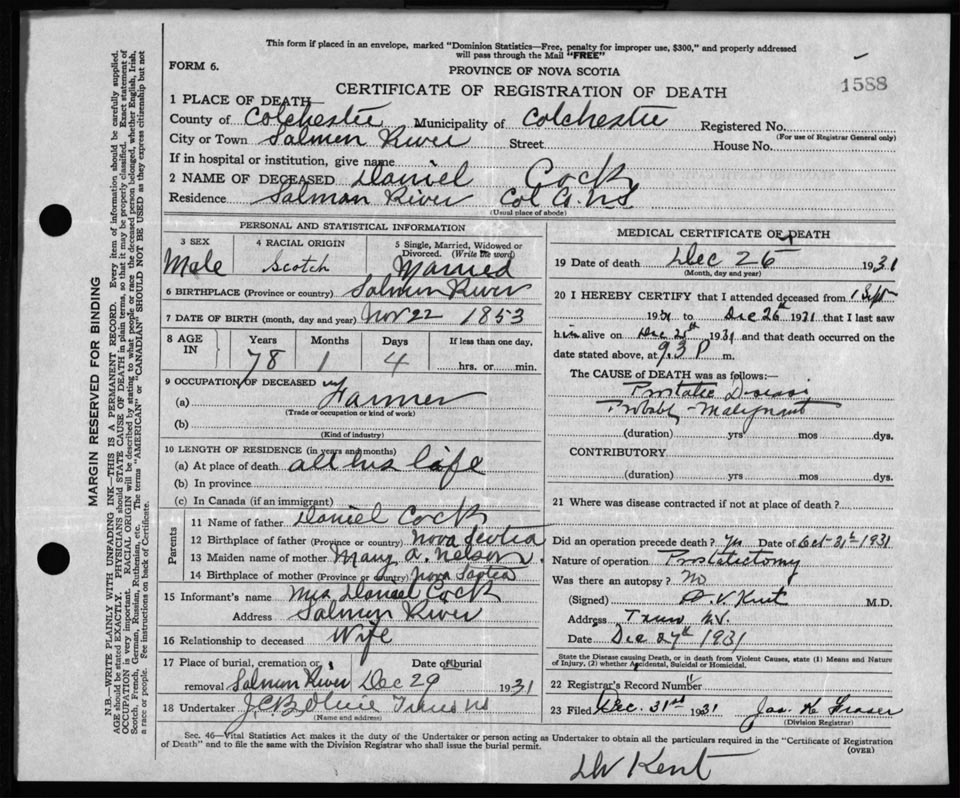 This form if placed in an envelope, marked "Dominion Statistics—Free, penalty for improper use, $300," and properly addressed
will pass through the Mail "FREE"
FORM 6.
PROVINCE OF NOVA SCOTIA
1588
CERTIFICATE OF REGISTRATION OF DEATH
1 PLACE OF DEATH—
County of Colchester Municipality of Colchester Registered No.
(For use of Registrar General only)
City or Town Salmon River Street House No.
If in hospital or institution, give name
2 NAME OF DECEASED Daniel Cock
Residence Salmon River Col Co. NS
(Usual place of abode)
PERSONAL AND STATISTICAL INFORMATION
3 SEX 4 RACIAL ORIGIN 5 Single, Married, Widowed or
Divorced. (Write the word)
Male Scotch Married
6 BIRTHPLACE (Province or country) Salmon River
7 DATE OF BIRTH (month, day and year) Nov 22 1853
8 AGE IN Years Months Days If less than one day,
78 1 4 hrs. or min.
9 OCCUPATION OF DECEASED
(a) Farmer
(Trade or occupation or kind of work)
(b)
(Kind of industry)
10 LENGTH OF RESIDENCE (in years and months)
(a) At place of death all his life
(b) In province
(c) In Canada (if an immigrant)
Parents
11 Name of father Daniel Cock
12 Birthplace of father (Province or country) Nova Scotia
13 Maiden name of mother Mary A. Nelson
14 Birthplace of mother (Province or country) Nova Scotia
15 Informant's name Mrs Daniel Cock
Address Salmon River
16 Relationship to deceased Wife
17 Place of burial, cremation or Date of burial
removal Salmon River Dec 29 1931
18 Undertaker Truro NS
(Name and address)
MEDICAL CERTIFICATE OF DEATH
19 Date of death Dec 26 1931
(Month, day and year)
20 I HEREBY CERTIFY that I attended deceased from 1 Sept
1931 to Dec 26th 1931 that I last saw
him alive on Dec 25th 1931 and that death occurred on the
date stated above, at 9.3 P m.
The CAUSE OF DEATH was as follows:—
Prostatic Disease
Probably Malignant
(duration) yrs mos dys.
CONTRIBUTORY
(duration) yrs mos dys.
21 Where was disease contracted if not at place of death?
Did an operation precede death? Yes Date of Oct 31st 1931
Nature of operation Prostatectomy
Was there an autopsy? No
(Signed) D. V. Kent M.D.
Address Truro N.S.
Date Dec 27th 1931
State the Disease causing Death, or in death from Violent Causes, state (1) Means and Nature
of Injury, (2) whether Accidental, Suicidal or Homicidal.
22 Registrar's Record Number
23 Filed Dec. 31st 1931 Jas. K Fraser
(Division Registrar)
Sec. 46—Vital Statistics Act makes it the duty of the Undertaker or person acting as Undertaker to obtain all the particulars required in the "Certificate of Registration
of Death" and to file the same with the Division Registrar who shall issue the burial permit. (OVER)
Kent
MARGIN RESERVED FOR BINDING
N.B.—WRITE PLAINLY WITH UNFADING INK—THIS IS A PERMANENT RECORD. Every item of information should be carefully supplied.
AGE should be stated EXACTLY. PHYSICIANS should STATE CAUSE OF DEATH in plain terms, so that it may be properly classified. Exact statement of
OCCUPATION is very important. RACIAL ORIGIN will be described by stating to what people or race the deceased person belonged, whether English, Irish,
Scotch, French, German, Russian, Ruthenian, etc. The terms "AMERICAN" or "CANADIAN" SHOULD NOT BE USED as they express citizenship but not
a race or people. See instructions on back of Certificate.